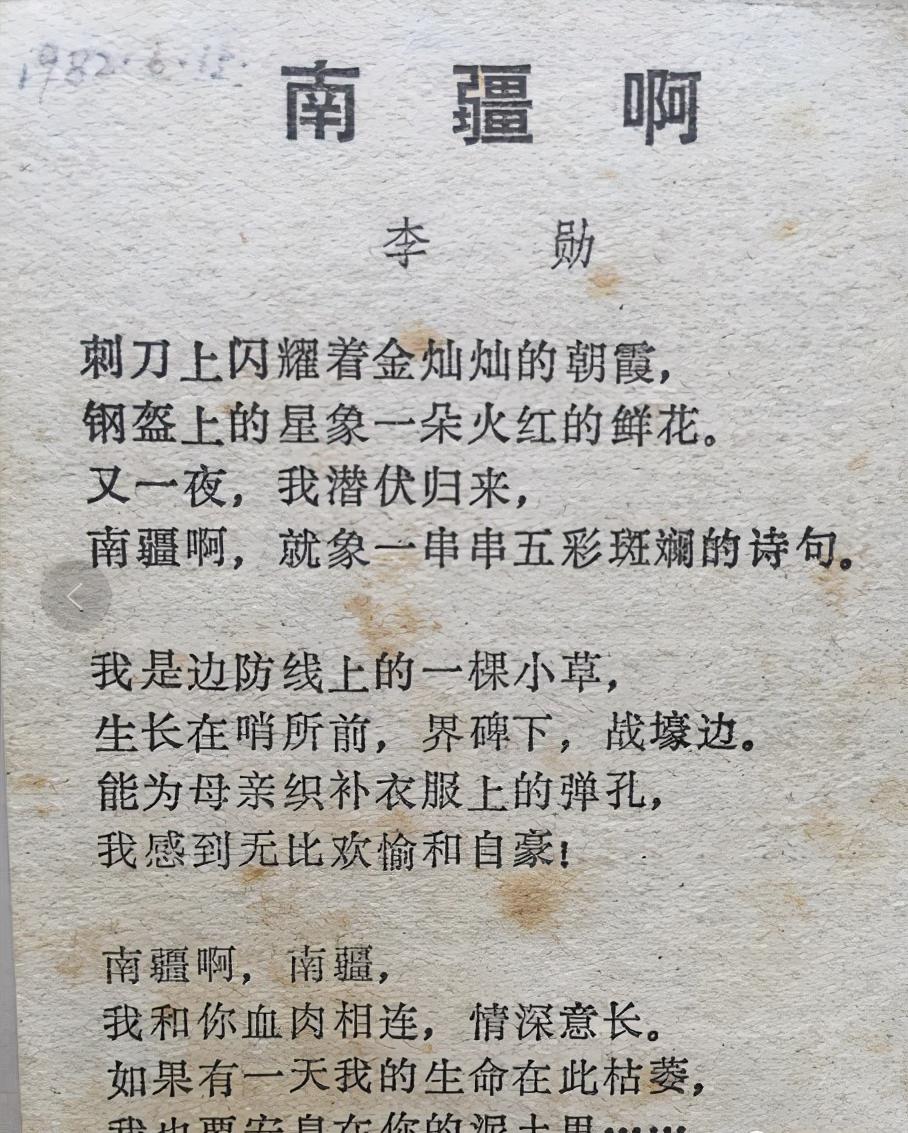 1982.6.15.
南疆啊
李勋
刺刀上闪耀着金灿灿的朝霞，
钢盔上的星象一朵火红的鲜花。
又一夜，我潜伏归来，
南疆啊，就象一串串五彩斑斓的诗句。
我是边防线上的一棵小草，
生长在哨所前，界碑下，战壕边。
能为母亲织补衣服上的弹孔，
我感到无比欢愉和自豪！
南疆啊，南疆，
我和你血肉相连，情深意长。
如果有一天我的生命在此枯萎，
我也要安息在你的泥土里……